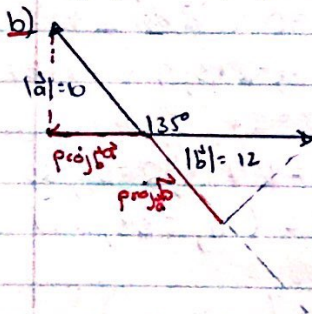 b)
|a⃗|=10
135°
proj_b⃗ a⃗
|b⃗|= 12
proj_a⃗ b⃗